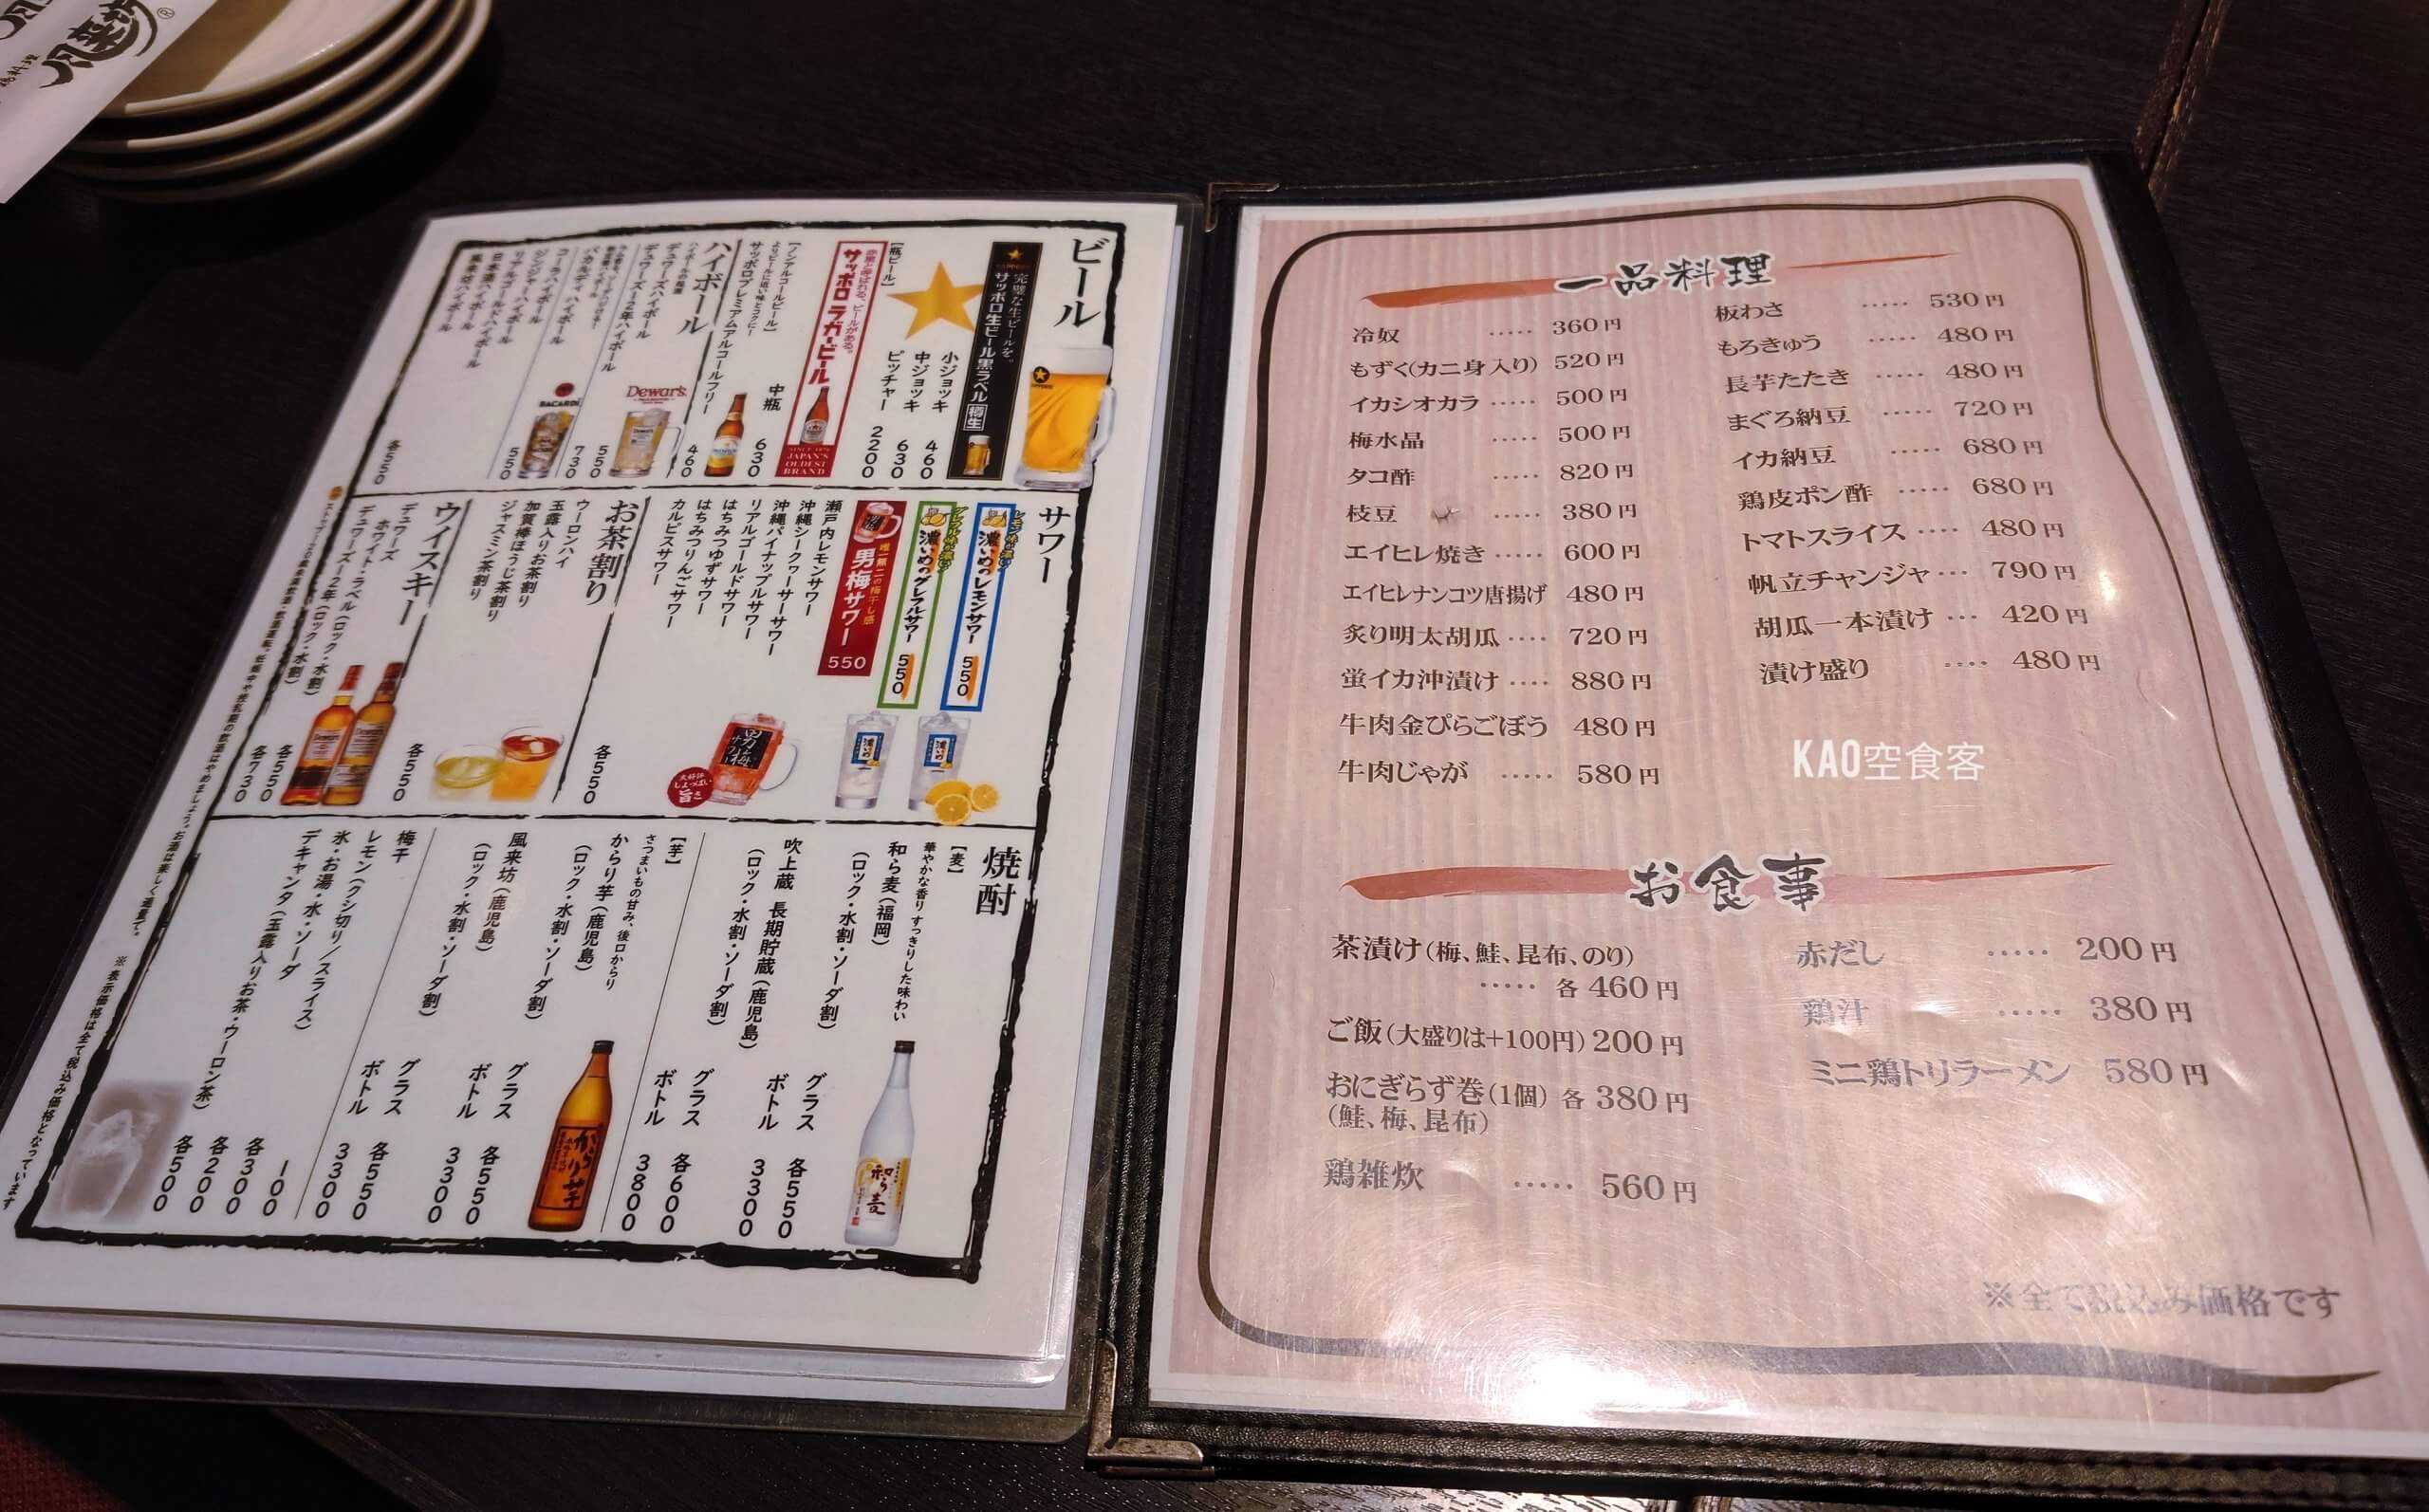 風来坊
®
ビール
完璧な生ビールを。
サッポロ生ビール黒ラベル 樽生
小ジョッキ 460
中ジョッキ 630
ピッチャー 2200
[瓶ビール]
赤星と呼ばれる、ビールがある。
サッポロ ラガービール
SINCE 1876
JAPAN'S
OLDEST
BRAND
中瓶 630
[ノンアルコールビール]
よりビールに近い味とコクに!
サッポロプレミアムアルコールフリー 460
ハイボール
デュワーズハイボール 550
デュワーズ12年ハイボール 730
Dewar's
バカルディ ハイボール 550
BACARDI
コークハイボール
ジンジャーハイボール
リアルゴールドハイボール
日本酒ハイボール
風来坊ハイボール
各550
サワー
レモン味が濃い
濃いめのレモンサワー 550
グレフル味が濃い
濃いめのグレフルサワー 550
唯一無二の梅干し感
男梅サワー
550
瀬戸内レモンサワー
沖縄シークヮーサーサワー
沖縄パイナップルサワー
リアルゴールドサワー
はちみつゆずサワー
はちみつりんごサワー
カルピスサワー
各550
お茶割り
ウーロンハイ
玉露入りお茶割り
加賀棒ほうじ茶割り
ジャスミン茶割り
各550
ウイスキー
デュワーズ
ホワイト・ラベル(ロック・水割) 各550
デュワーズ12年(ロック・水割) 各730
焼酎
[麦]
華やかな香り すっきりした味わい
和ら麦(福岡)
(ロック・水割・ソーダ割)
グラス 各550
ボトル 3300
吹上蔵 長期貯蔵(鹿児島)
(ロック・水割・ソーダ割)
グラス 各600
ボトル 3800
[芋]
さつまいもの甘み、後口からり
からり芋(鹿児島)
(ロック・水割・ソーダ割)
グラス 各550
ボトル 3300
風来坊(鹿児島)
(ロック・水割・ソーダ割)
グラス 各550
ボトル 3300
梅干 100
レモン(クシ切り/スライス) 各300
氷・お湯・水・ソーダ 各200
デキャンタ(玉露入りお茶・ウーロン茶) 各500
※表示価格は全て税込み価格となっています
一品料理
冷奴 ····· 360円
もずく(カニ身入り) 520円
イカシオカラ ····· 500円
梅水晶 ····· 500円
タコ酢 ····· 820円
枝豆 ····· 380円
エイヒレ焼き ····· 600円
エイヒレナンコツ唐揚げ 480円
炙り明太胡瓜 ···· 720円
蛍イカ沖漬け ···· 880円
牛肉金ぴらごぼう 480円
牛肉じゃが ····· 580円
板わさ ····· 530円
もろきゅう ····· 480円
長芋たたき ····· 480円
まぐろ納豆 ····· 720円
イカ納豆 ····· 680円
鶏皮ポン酢 ····· 680円
トマトスライス ···· 480円
帆立チャンジャ ··· 790円
胡瓜一本漬け ··· 420円
漬け盛り ···· 480円
KAO空食客
お食事
茶漬け(梅、鮭、昆布、のり)
····· 各460円
ご飯(大盛りは+100円) 200円
おにぎらず巻(1個) 各380円
(鮭、梅、昆布)
鶏雑炊 ····· 560円
赤だし ····· 200円
鶏汁 ····· 380円
ミニ鶏トリラーメン 580円
※全て税込み価格です